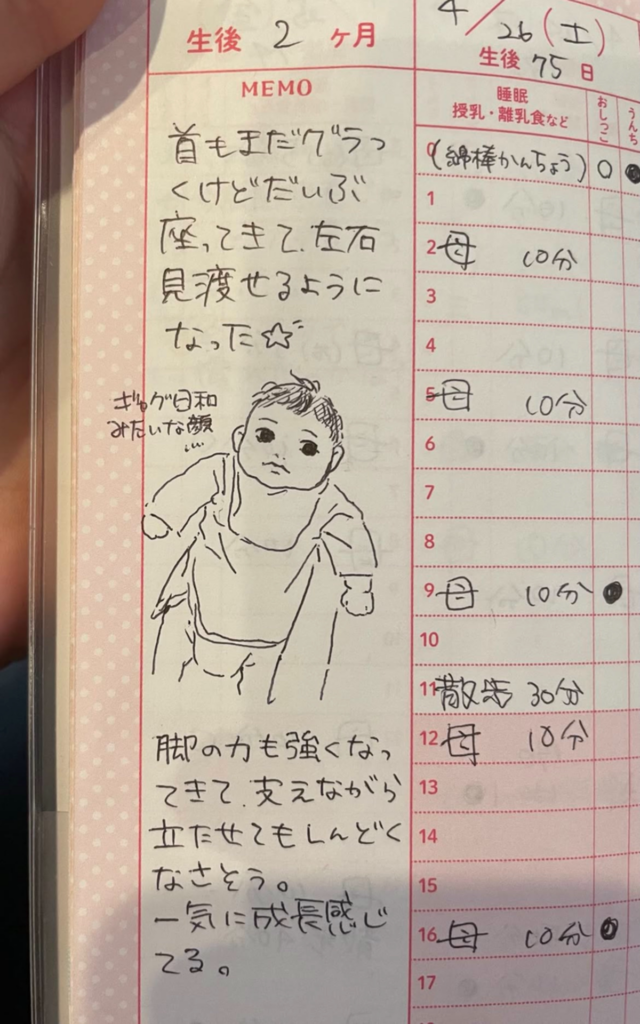 生後 2 ヶ月
MEMO
首もまだグラっ
くけどだいぶ
座ってきて、左右
見渡せるように
なった☆
ギャグ日和
みたいな顔
脚の力も強くなっ
てきて、支えながら
立たせてもしんどく
なさそう。
一気に成長感じ
てる。
4/26(土)
生後 75 日
睡眠
授乳・離乳食など
おしっこ
うんち
0 (綿棒かんちょう) ○ ●
1
2 母 10分
3
4
5 母 10分
6
7
8
9 母 10分 ●
10
11 散歩 30分
12 母 10分
13
14
15
16 母 10分 ●
17